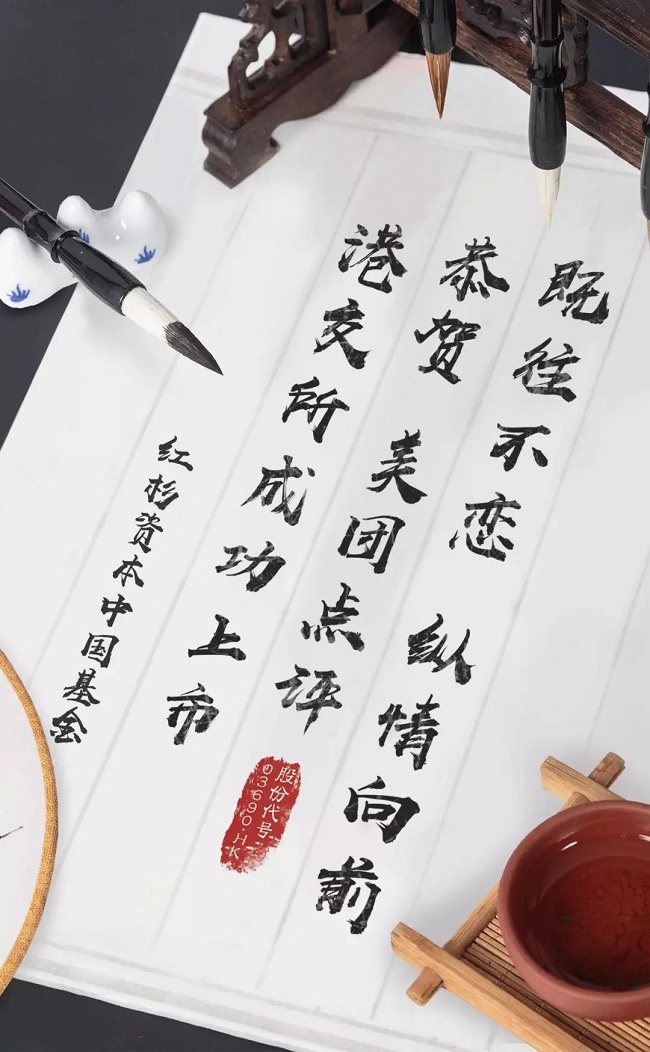 既往不恋 纵情向前
恭贺 美团点评
港交所成功上市
股份代号
03690.HK
红杉资本中国基金